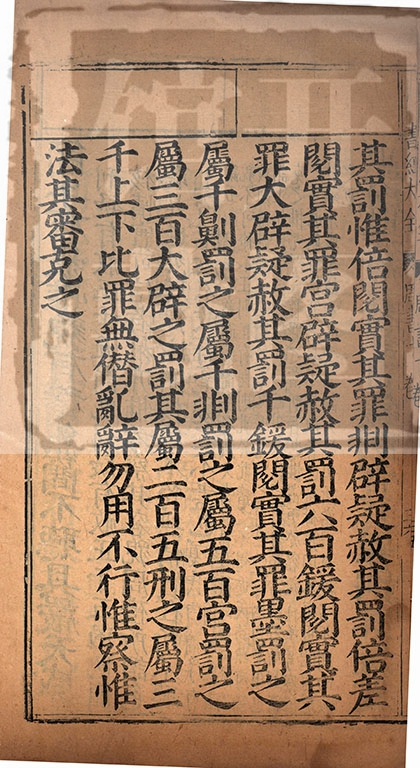 其罰惟倍閱實其罪剕辟疑赦其罰倍差
閱實其罪宮辟疑赦其罰六百鍰閱實其
罪大辟疑赦其罰千鍰閱實其罪墨罰之
屬千劓罰之屬千剕罰之屬五百宮罰之
屬三百大辟之罰其屬二百五刑之屬三
千上下比罪無僭亂辭勿用不行惟察惟
法其審克之